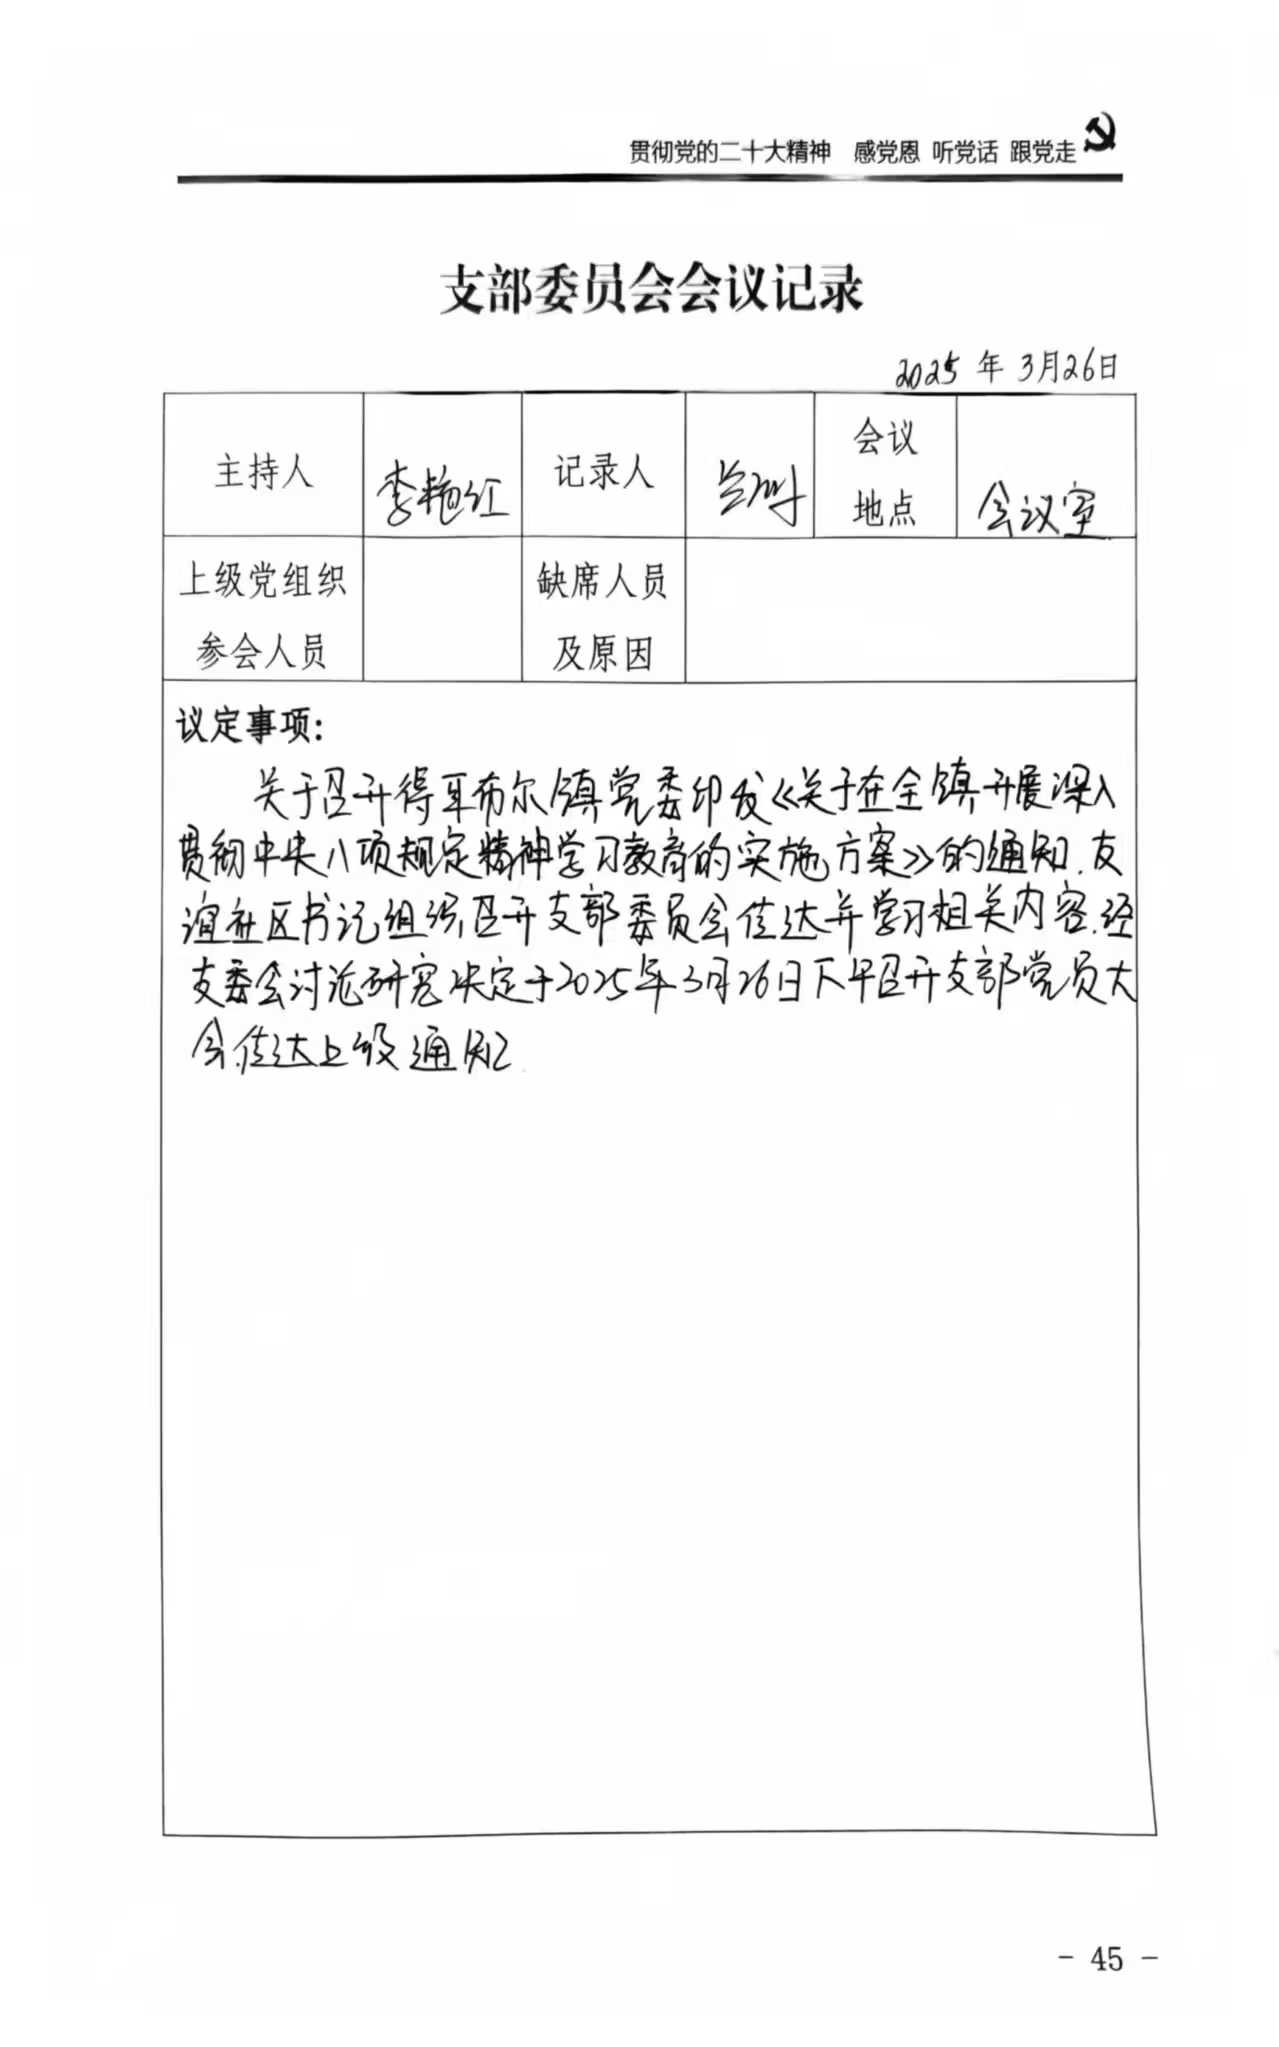 贯彻党的二十大精神 感党恩 听党话 跟党走
支部委员会会议记录
2025年3月26日
主持人 李艳红 记录人 会议地点 会议室
上级党组织参会人员 缺席人员及原因
议定事项：
关于召开得耳布尔镇党委印发《关于在全镇开展深入
贯彻中央八项规定精神学习教育的实施方案》的通知.友
谊社区书记组织召开支部委员会传达并学习相关内容.经
支委会讨论研究决定于2025年3月26日下午召开支部党员大
会.传达上级通知
- 45 -